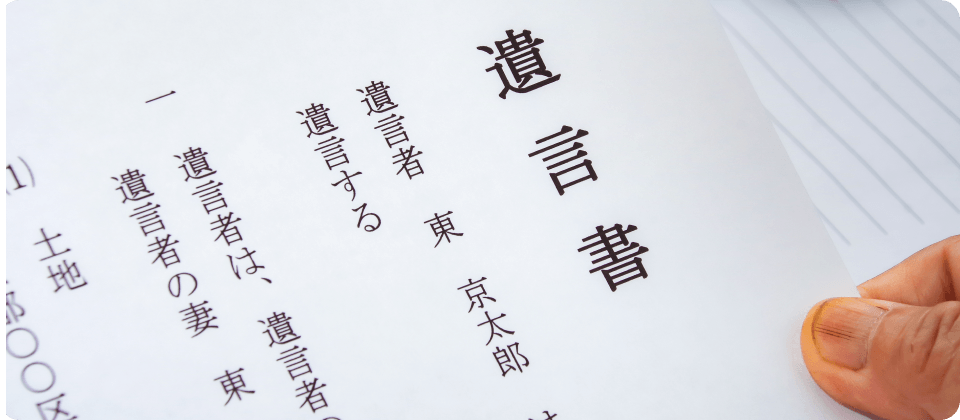 遺言書
遺言者　東　京太郎
遺言する
一　遺言者は、遺言者の
遺言者の妻　東
(1)　土地
部〇〇区